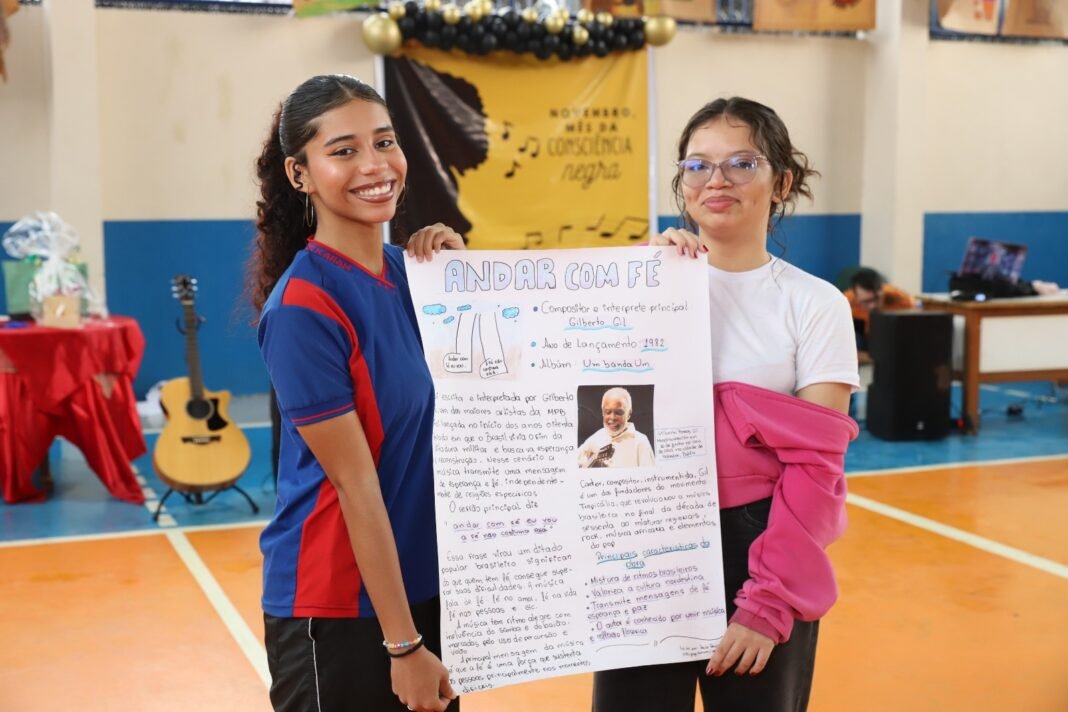 NOVEMBRO,
MÊS DA
CONSCIÊNCIA
negra
ANDAR COM FÉ
• Compositor e interprete principal
Gilberto Gil
• Ano de Lançamento: 1982
• Albúm: Um banda Um
É escrita e interpretada por Gilberto
um dos maiores artistas da MPB
foi lançada no início dos anos oitenta
em que o Brasil vivia o fim da
ditadura militar e buscava esperança
reconstrução. Nesse cenário a
música transmite uma mensagem
de esperança e fé, independente-
mente de religiões específicas
O versão principal diz
"andar com fé eu vou
a fé não costuma faia"
Essa frase virou um ditado
popular brasileiro significan-
do que quem tem fé consegue supe-
rar suas dificuldades. A música
fala de fé: fé no amor, fé na vida
fé nas pessoas e etc.
A música tem ritmo alegre com
influência do samba e do baião.
marcados pelo uso de percursão e
violão
A principal mensagem da música
é que a fé é uma força que sustenta
as pessoas, principalmente nos momentos
dificeis.
Cantor, compositor, instrumentista, Gil
é um dos fundadores do movimento
Tropicália, que revolucionou a música
brasileira no final da década de
sessenta ao misturar regionais,
rock, música africana e elementos
do pop
Principais características da
obra
• Mistura de ritmos brasileiros
• Valoriza a cultura nordestina
• Transmite mensagens de fé
esperança e paz
• O autor é conhecido por unir música
e reflexão filosófica